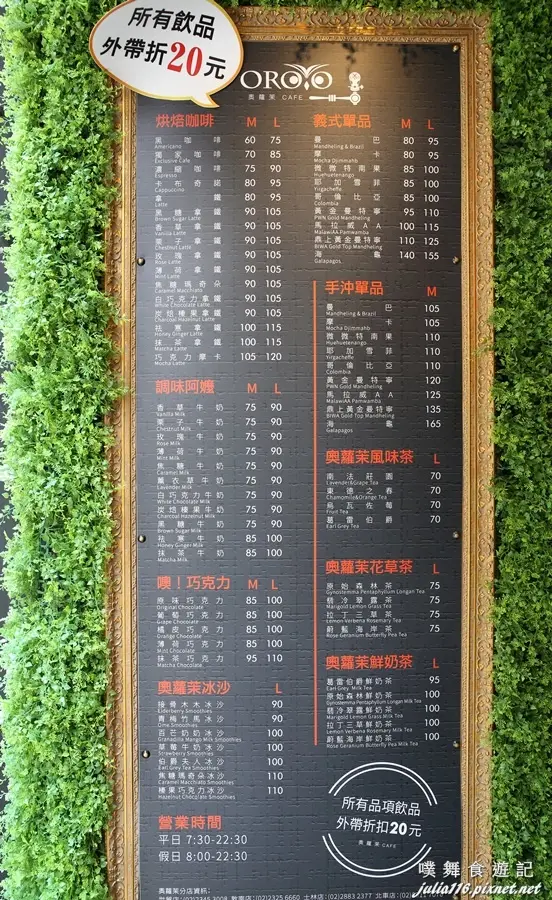 所有飲品
外帶折20元
OROMO
奧蘿茉 CAFE
烘焙咖啡 M L
黑咖啡 60 75
Americano
獨家咖啡 70 85
Exclusive Cafe
濃縮咖啡 75 90
Espresso
卡布奇諾 80 95
Cappuccino
拿鐵 80 95
Latte
黑糖拿鐵 90 105
Brown Sugar Latte
香草拿鐵 90 105
Vanilla Latte
栗子拿鐵 90 105
Chestnut Latte
玫瑰拿鐵 90 105
Rose Latte
薄荷拿鐵 90 105
Mint Latte
焦糖瑪奇朵 90 105
Caramel Macchiato
白巧克力拿鐵 90 105
White Chocolate Latte
炭焙榛果拿鐵 90 105
Charcoal Hazelnut Latte
祛寒拿鐵 100 115
Honey Ginger Latte
抹茶拿鐵 100 115
Matcha Latte
巧克力摩卡 105 120
Mocha Latte
調味阿嬤 M L
香草牛奶 75 90
Vanilla Milk
栗子牛奶 75 90
Chestnut Milk
玫瑰牛奶 75 90
Rose Milk
薄荷牛奶 75 90
Mint Milk
焦糖牛奶 75 90
Caramel Milk
薰衣草牛奶 75 90
Lavender Milk
白巧克力牛奶 75 90
White Chocolate Milk
炭焙榛果牛奶 75 90
Charcoal Hazelnut Milk
黑糖牛奶 75 90
Brown Sugar Milk
祛寒牛奶 85 100
Honey Ginger Milk
抹茶牛奶 85 100
Matcha Milk
噢！巧克力 M L
原味巧克力 85 100
Original Chocolate
葡萄巧克力 85 100
Grape Chocolate
橘皮巧克力 85 100
Orange Chocolate
薄荷巧克力 85 100
Mint Chocolate
抹茶巧克力 95 110
Matcha Chocolate
奧蘿茉冰沙 L
接骨木木冰沙 90
Elderberry Smoothies
青梅竹馬冰沙 90
Ume Smoothies
百芒奶奶冰沙 100
Granadilla Mango Milk Smoothies
草莓牛奶冰沙 100
Strawberry Smoothies
伯爵夫人冰沙 100
Earl Grey Tea Smoothies
焦糖瑪奇朵冰沙 110
Caramel Macchiato Smoothies
榛果巧克力冰沙 110
Hazelnut Chocolate Smoothies
營業時間
平日 7:30-22:30
假日 8:00-22:30
奧蘿茉分店資訊：
義式單品 M L
曼巴 80 95
Mandheling & Brazil
摩卡 80 95
Mocha Djimmahh
微微特南果 85 100
Huehuetenango
耶加雪菲 85 100
Yirgacheffe
哥倫比亞 85 100
Colombia
黃金曼特寧 95 110
PWN Gold Mandheling
馬拉威AA 100 115
MalawiAA Pamwamba
鼎上黃金曼特寧 110 125
BIWA Gold Top Mandheling
海龜 140 155
Galapagos
手沖單品 M
曼巴 105
Mandheling & Brazil
摩卡 105
Mocha Djimmahh
微微特南果 110
Huehuetenango
耶加雪菲 110
Yirgacheffe
哥倫比亞 110
Colombia
黃金曼特寧 120
PWN Gold Mandheling
馬拉威AA 125
MalawiAA Pamwamba
鼎上黃金曼特寧 135
BIWA Gold Top Mandheling
海龜 165
Galapagos
奧蘿茉風味茶 L
南法莊園 70
Lavender&Grape Tea
東德之春 70
Chamomile&Orange Tea
烏瓦佐莓 70
Fruit Tea
葛雷伯爵 70
Earl Grey Tea
奧蘿茉花草茶 L
原始森林茶 75
Gynostemma Pentaphyllum Longan Tea
翡冷翠露茶 75
Marigold Lemon Grass Tea
拉丁三草茶 75
Lemon Verbena Rosemary Tea
蔚藍海岸茶 75
Rose Geranium Butterfly Pea Tea
奧蘿茉鮮奶茶 L
葛雷伯爵鮮奶茶 95
Earl Grey Milk Tea
原始森林鮮奶茶 100
Gynostemma Pentaphyllum Longan Milk Tea
翡冷翠露鮮奶茶 100
Marigold Lemon Grass Milk Tea
拉丁三草鮮奶茶 100
Lemon Verbena Rosemary Milk Tea
蔚藍海岸鮮奶茶 100
Rose Geranium Butterfly Pea Milk Tea
所有品項飲品
外帶折扣20元
奧蘿茉 CAFE
噗舞食遊記
julia116.pixnet.net